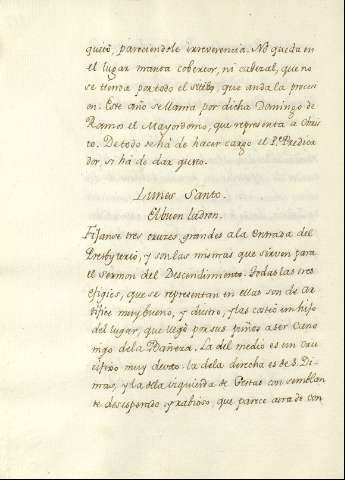 quició, pareciendole irreverencia. No queda en
el lugar manta cobertor, ni cabezal, que no
se tienda por todo el sitio, que anda la proces
n: Este año se llama por dicha Domingo de
Ramos el Mayordomo, que representa a Chris
to. De todo se há de hacer cargo el P. Predica
dor, si há de dar gusto.
Lunes Santo.
El buen ladron.
Fijanse tres cruzes grandes a la entrada del
Presbyterio, y son las mismas que sirven para
el Sermon del Descendimiento. Todas las tres
efigies, que se representan en ellas son de ar
tifice muy bueno, y diestro, y las costeó un hijo
del lugar, que llegó por sus puños a ser Cano
nigo de la Bañeza. La del medio es un cru
cifixo muy devoto: la de la derecha es de S. Di
mas, y la de la izquierda de Gestas con semblan
te desesperado, y rabioso, que parece acra de con